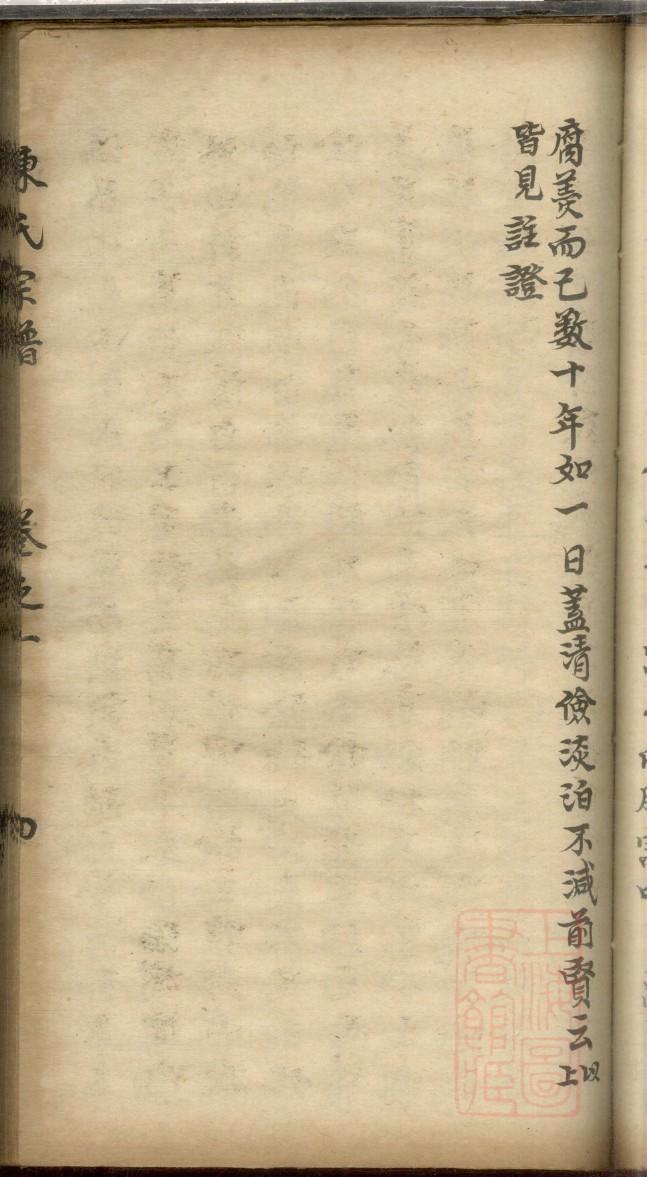 腐羮而已数十年如一日蓋清儉淡泊不減前賢云以上
皆見註證
陳氏宗譜 卷之一 四
上海圖書館藏